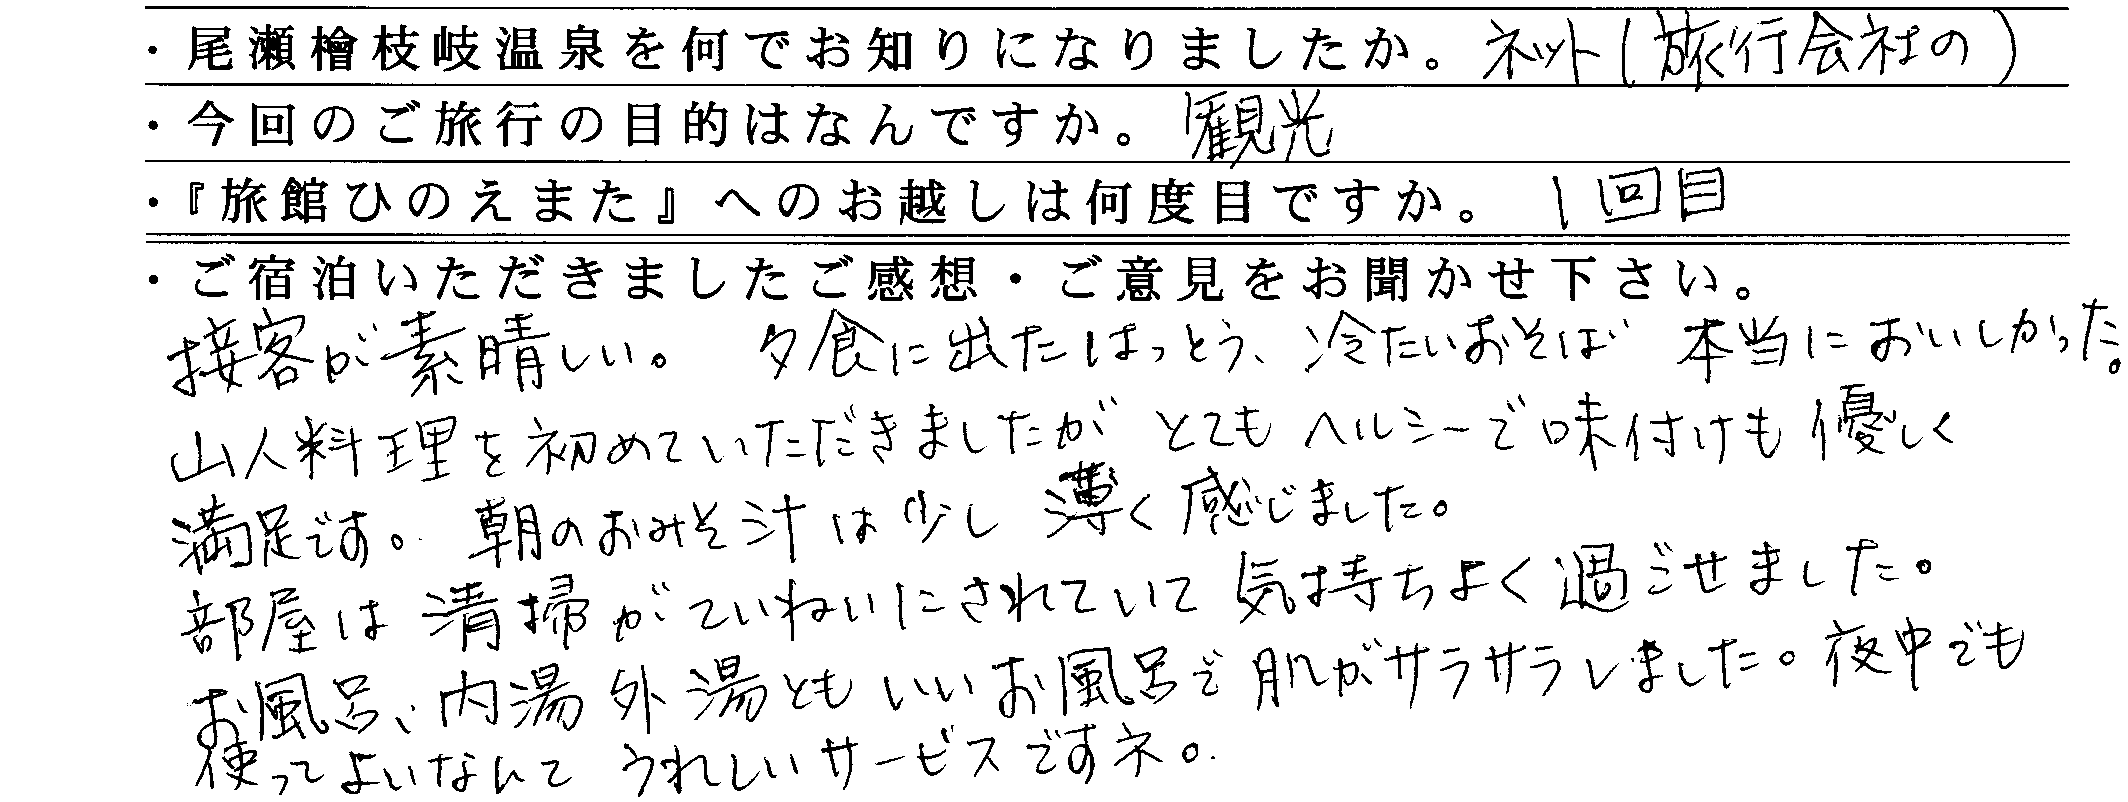 ・尾瀬檜枝岐温泉を何でお知りになりましたか。ネット(旅行会社の)
・今回のご旅行の目的はなんですか。観光
・『旅館ひのえまた』へのお越しは何度目ですか。1回目
・ご宿泊いただきましたご感想・ご意見をお聞かせ下さい。
接客が素晴しい。 夕食に出たはっとう、冷たいおそば 本当においしかった。
山人料理を初めていただきましたが とてもヘルシーで味付けも優しく
満足です。朝のおみそ汁は少し薄く感じました。
部屋は清掃がていねいにされていて気持ちよく過ごせました。
お風呂、内湯外湯ともいいお風呂で肌がサラサラしました。夜中でも
使ってよいなんてうれしいサービスですネ。